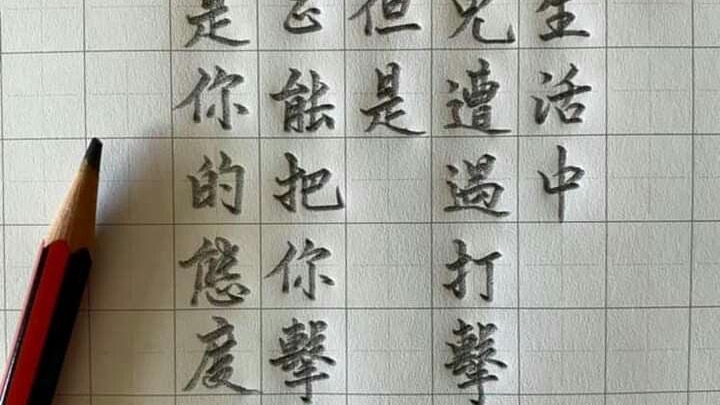 生活中
遭過打擊
但是
能把你擊
是你的態度